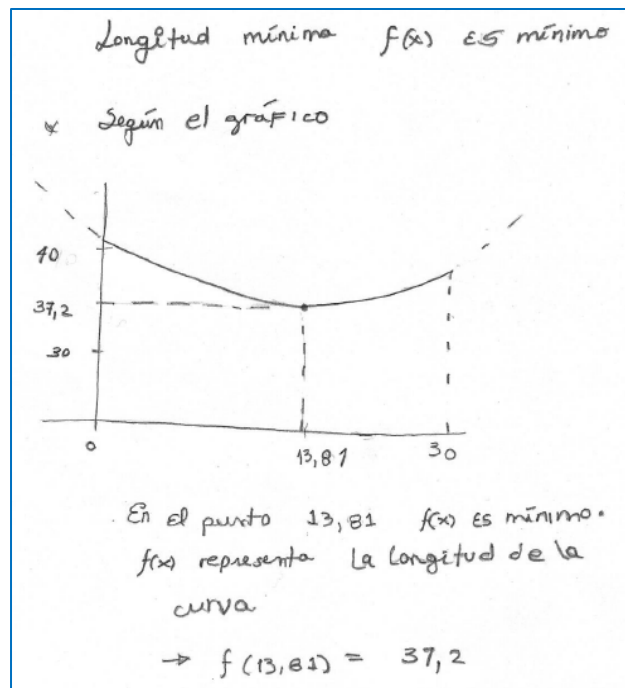 Longitud mínima f(x) es mínimo
* Según el gráfico
40
37,2
30
0
13,81
30
En el punto 13,81 f(x) es mínimo.
f(x) representa La Longitud de la
curva
→ f(13,81) = 37,2